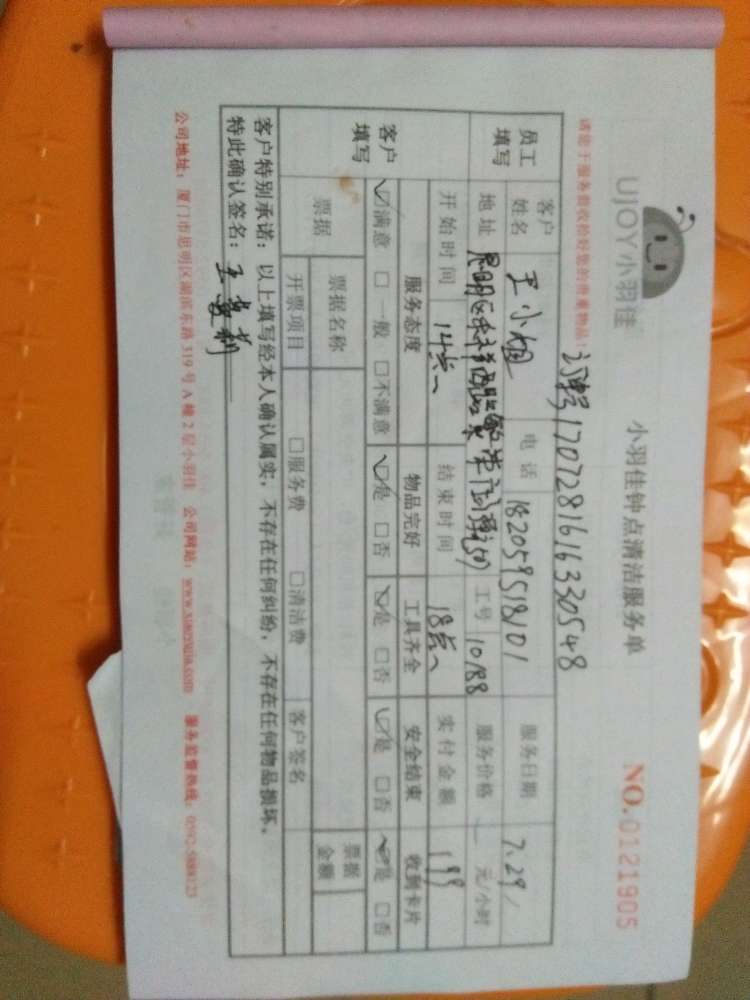 UJOY小羽佳 小羽佳钟点清洁服务单 NO.0121905
请您于服务前收拾好您的贵重物品! 订单号1707281616330548
员工填写 客户姓名 王小姐 电话 18205951810 服务日期 7.29
地址 思明区 工号 10188 服务价格 元/小时
开始时间 14点 结束时间 18点 实付金额 199
客户填写 服务态度 物品完好 工具齐全 安全结束 收到卡片
☑满意 □一般 □不满意 ☑是 □否 ☑是 □否 ☑是 □否 ☑是 □否
票据 票据名称 票据金额
开票项目 □服务费 □清洁费 客户签名
客户特别承诺:以上填写经本人确认属实,不存在任何纠纷,不存在任何物品损坏。
特此确认签名:王
公司地址:厦门市思明区湖滨东路319号A幢2层小羽佳 公司网站:www.xiaoyujia.com 服务监督热线:0592-5888123